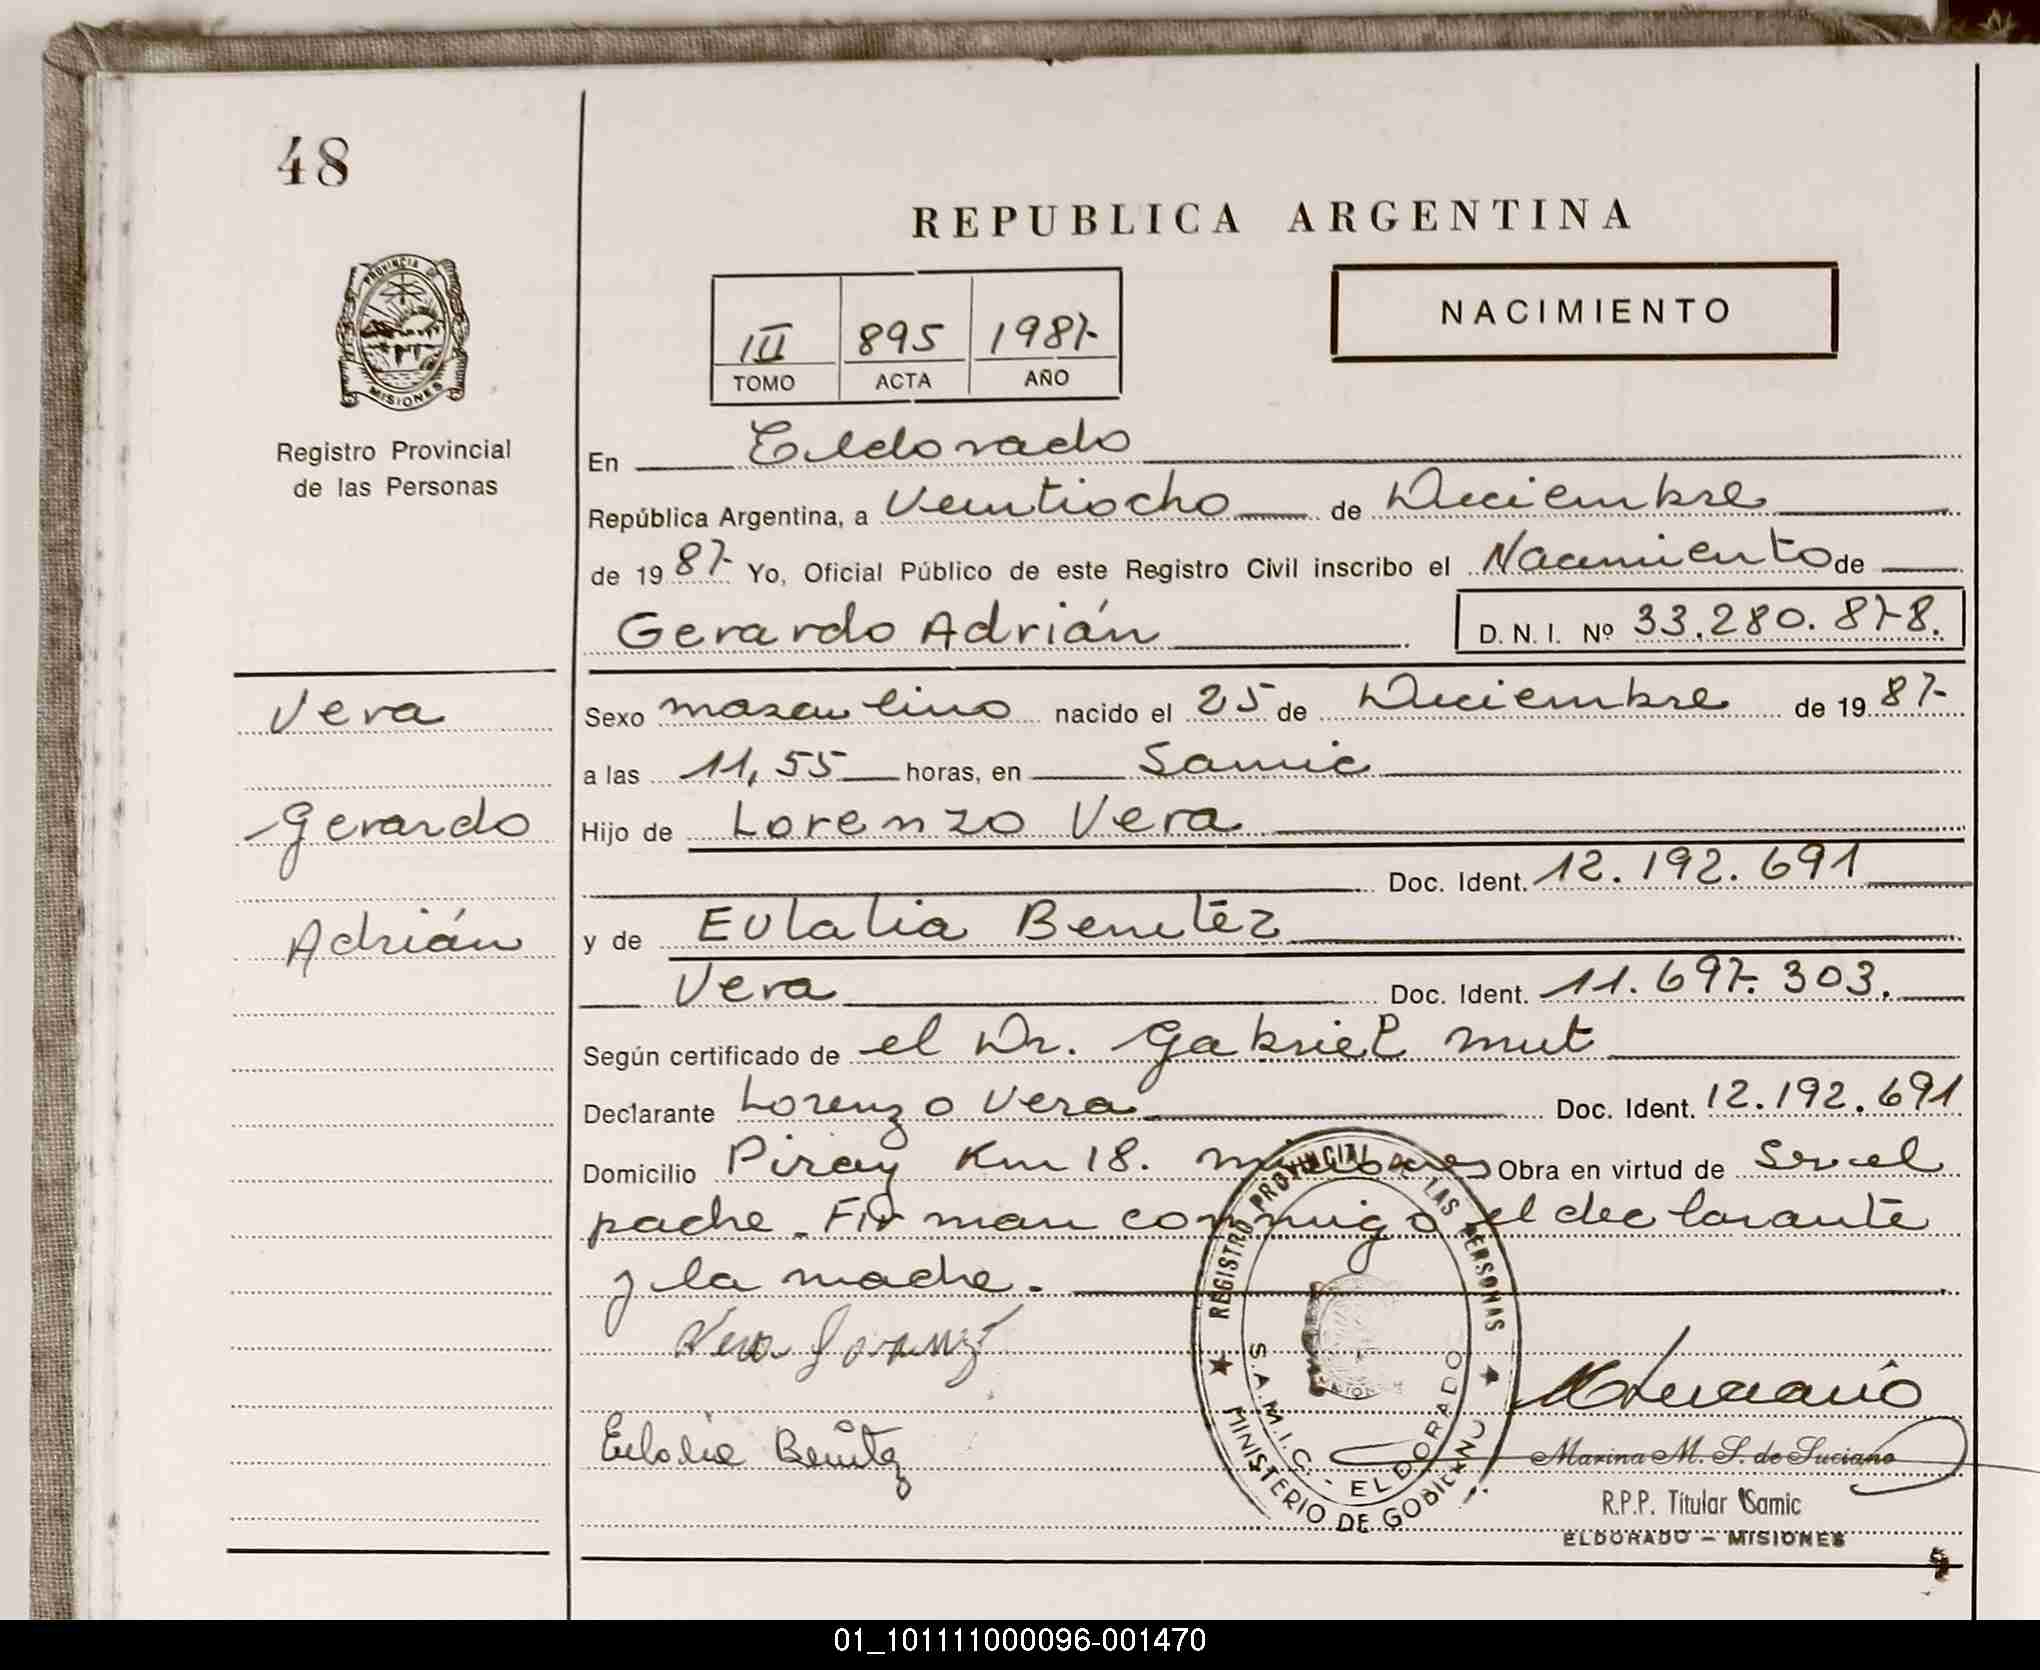 48
REPUBLICA ARGENTINA
PROVINCIA DE
MISIONES
Registro Provincial
de las Personas
III 895 1987
TOMO ACTA AÑO
NACIMIENTO
En Eldorado
República Argentina, a Veintiocho de Diciembre
de 1987 Yo, Oficial Público de este Registro Civil inscribo el Nacimiento de
Gerardo Adrián D. N. I. Nº 33.280.878.
Vera
Gerardo
Adrián
Sexo masculino nacido el 25 de Diciembre de 1987
a las 11,55 horas, en Samic
Hijo de Lorenzo Vera
Doc. Ident. 12.192.691
y de Eulalia Benitez
Vera Doc. Ident. 11.697.303.
Según certificado de el Dr. Gabriel Mut
Declarante Lorenzo Vera Doc. Ident. 12.192.691
Domicilio Piray Km 18. Misiones Obra en virtud de ser el
padre. Firman conmigo el declarante
y la madre.
Vera Lorenzo
Eulalia Benitez
REGISTRO PROVINCIAL DE LAS PERSONAS
S.A.M.I.C. - ELDORADO
MINISTERIO DE GOBIERNO
Marina M. S. de Luciano
R.P.P. Titular Samic
ELDORADO - MISIONES
01_101111000096-001470